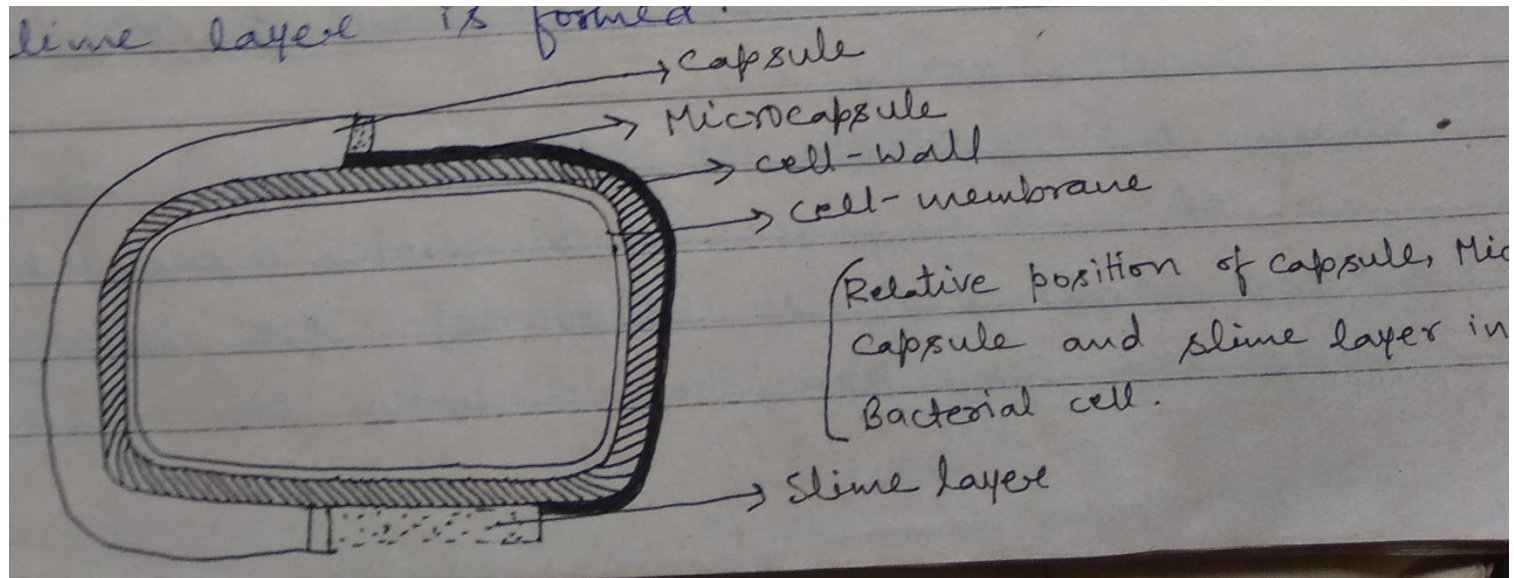 lime layer is formed.
Capsule
Microcapsule
cell-wall
cell-membrane
Relative position of capsule, Mic
capsule and slime layer in
Bacterial cell.
Slime layer